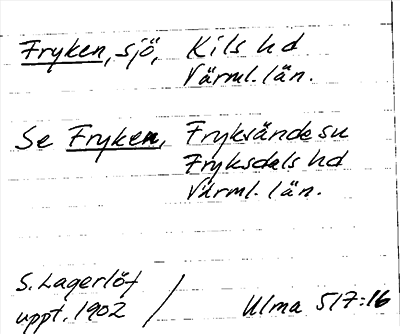 Fryken, sjö, Kils hd
Värml. län.
Se Fryken, Fryksände sn
Fryksdals hd
Värml. län.
S. Lagerlöf
uppt. 1902 / Ulma 517:16